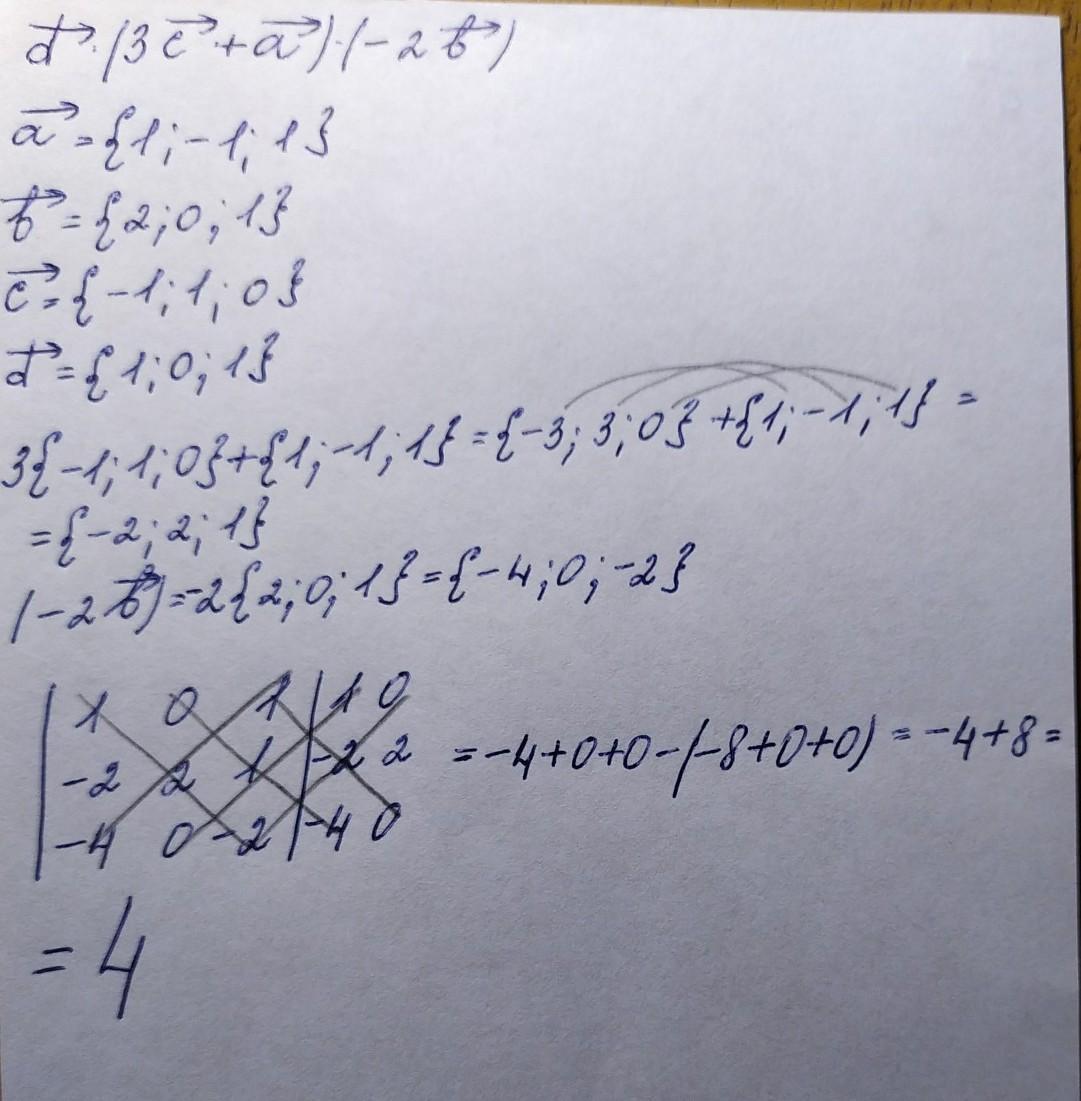 d⃗·(3c⃗+a⃗)·(-2b⃗)
a⃗={1;-1;1}
b⃗={2;0;1}
c⃗={-1;1;0}
d⃗={1;0;1}
3{-1;1;0}+{1;-1;1}={-3;3;0}+{1;-1;1}=
={-2;2;1}
(-2b⃗)=-2{2;0;1}={-4;0;-2}
|1 0 1|1 0
|-2 2 1|-2 2 =-4+0+0-(-8+0+0)=-4+8=
|-4 0 -2|-4 0
=4